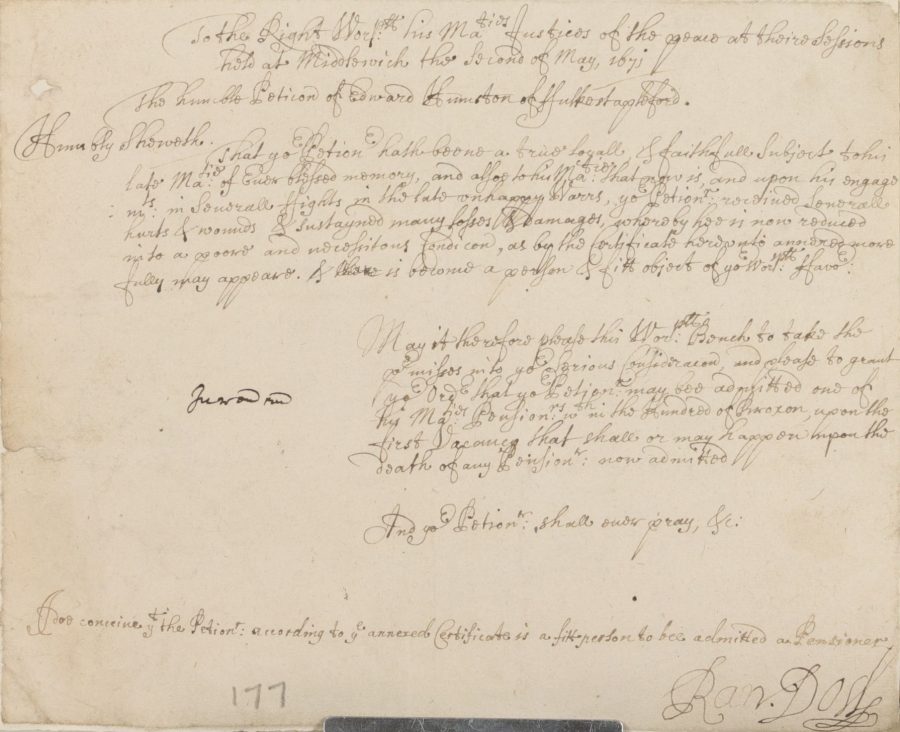 To the Right Wor:pll his Maties Justices of the peace at theire Sessions
held at Middlewich the Second of May, 1671
The humble Peticon of Edward Humston of ffulke stapleford.
Humbly Sheweth.
That yoe Petioner hath beene a true loyall & faithfull Subject to his
late Matie: of Ever blessed memory, and alsoe to his Matie: that now is, and upon his engage
mts: in Severall ffights in the late unhappy Warrs, yoe Petionr: received Severall
hurts & wounds & sustayned many losses & damages, whereby hee is now reduced
into a poore and necessitous Condicon, as by the Certificate hereunto annexed more
fully may appeare. & is become a person & fitt object of yoe Worpll: ffavoe:
May it therefore please this Wor:pll Bench to take the
pemisses into yoe Serious Consideracon and please to grant
yoe Orde that yoe Petionr: may bee admitted one of
his Maties Pensionrs: wth in the Hundred of Broxon, upon the
first Vacancy that shall or may happen upon the
death of any Pensionr: now admitted
And yoe Petionr: shall ever pray, &c:
I doe conceive yt the Petionr: according to ye annexed Certificate is a fitt person to bee admitted a Pensioner
Ran. Dod
177